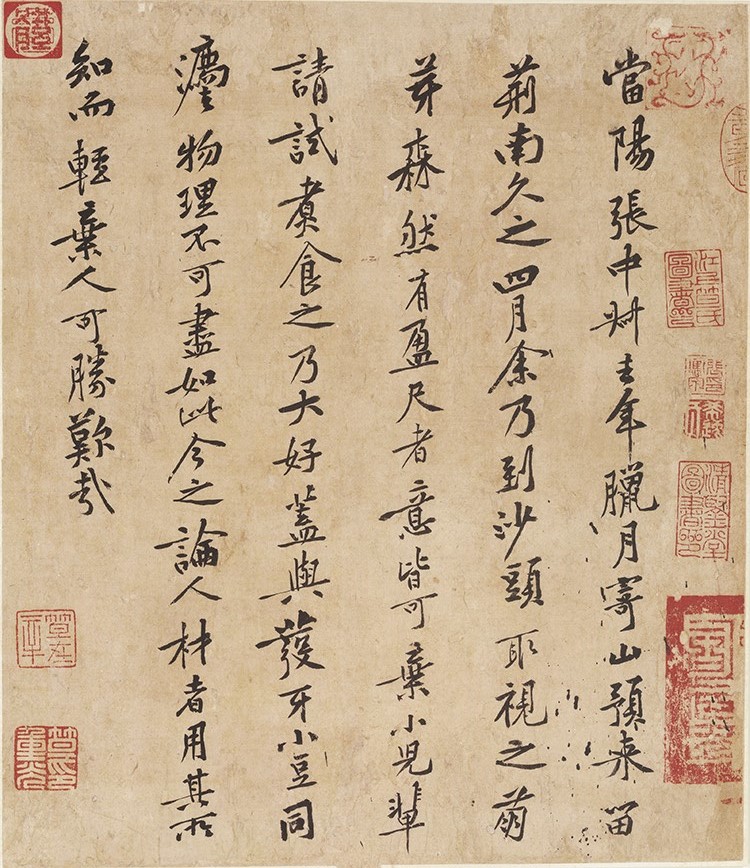 當陽張中叔去年臘月寄山預来留
荆南久之四月余乃到沙頭取視之萌
芽森然有盈尺者意皆可棄小兒輩
請試煑食之乃大好蓋與發牙小豆同
灋物理不可盡如此今之論人材者用其所
知而輕棄人可勝歎哉